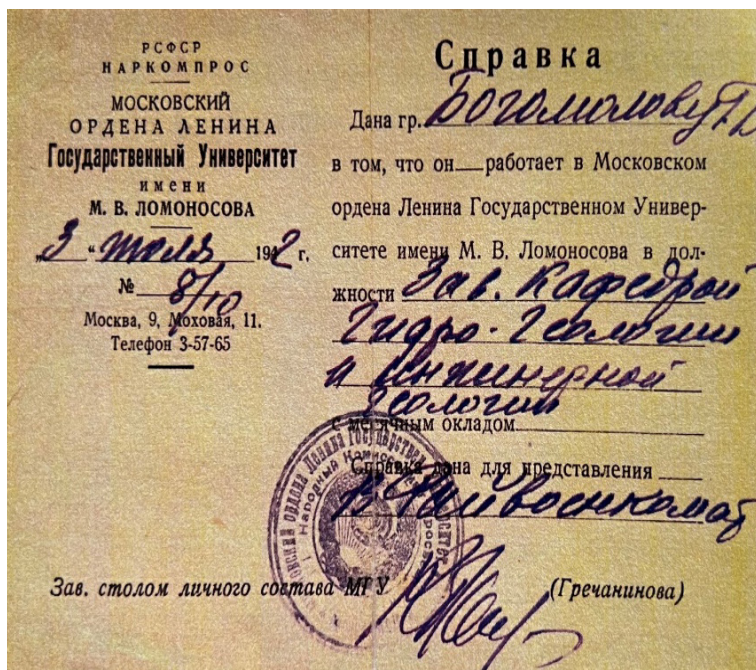 РСФСР
НАРКОМПРОС
МОСКОВСКИЙ
ОРДЕНА ЛЕНИНА
Государственный Университет
имени
М. В. ЛОМОНОСОВА
„3“ июля 1942 г.
№ 8/10
Москва, 9, Моховая, 11.
Телефон 3-57-65
Справка
Дана гр. Богомолову
в том, что он работает в Московском
ордена Ленина Государственном Универ-
ситете имени М. В. Ломоносова в дол-
жности Зав. Кафедрой
Гидро-Геологии
и инженерной
Геологии
с месячным окладом
Справка дана для представления
в Райвоенкомат
Зав. столом личного состава МГУ (Гречанинова)